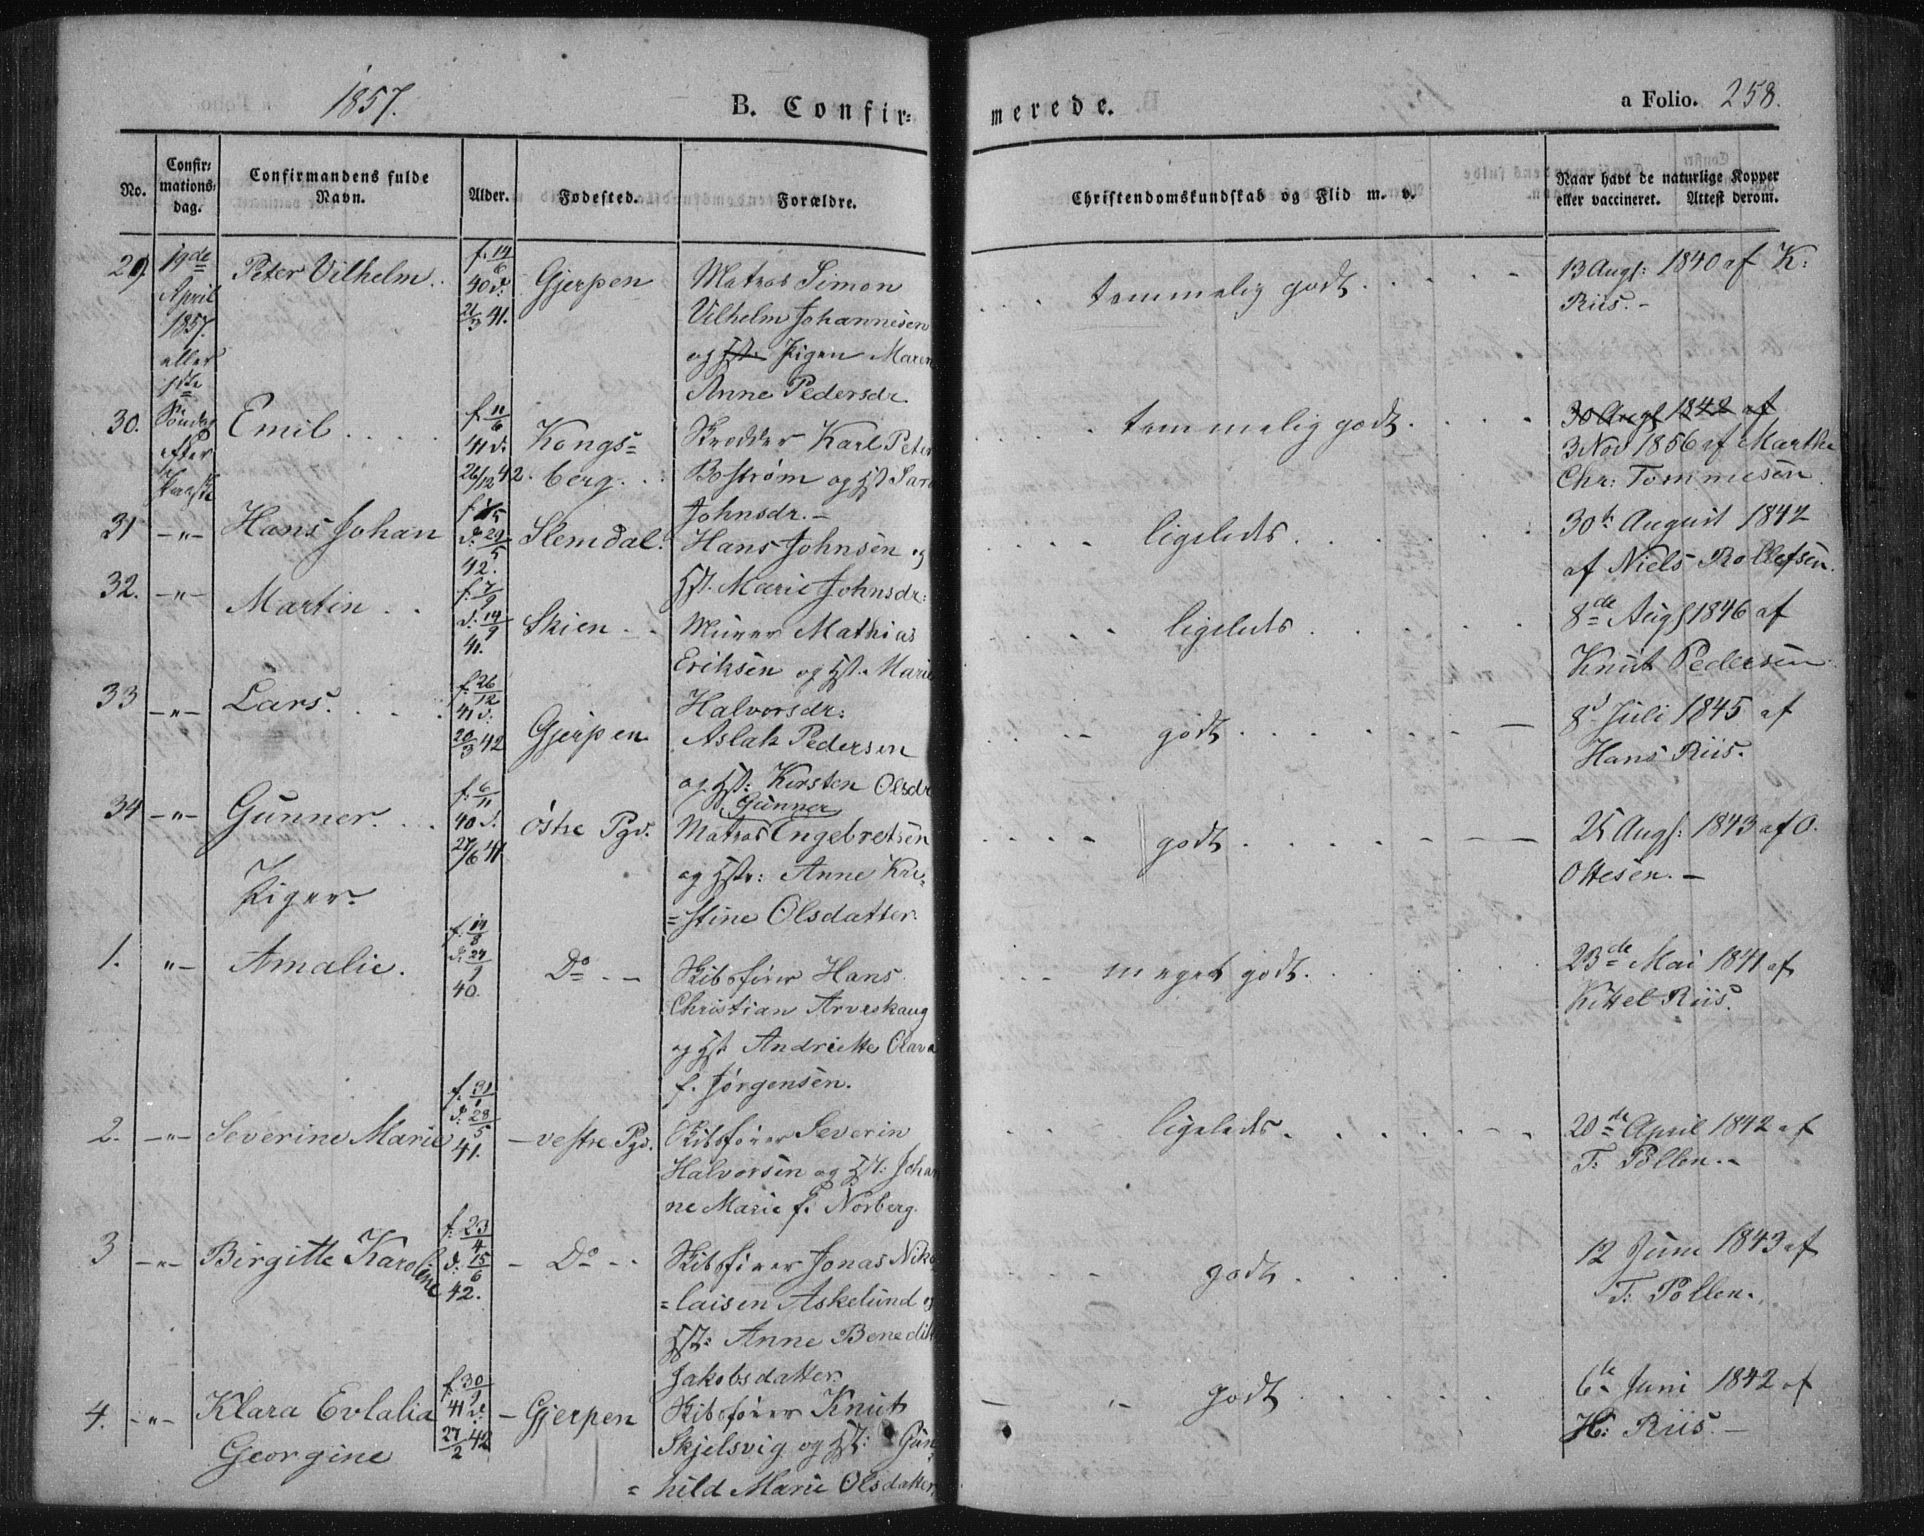 1857.
B. Confir=
merede.
a Folio. 258.
No.
Confir=
mations=
dag.
Confirmandens fulde
Navn.
Alder.
Fødested.
Forældre.
Christendomskundskab og Flid m. v.
Naar havt de naturlige Kopper
eller vaccineret. Attest derom.
29. 19de
April
1857.
eller
1ste
Sønda
efter
Paaske
Peter Vilhelm.
f. 14/6
40 d.
21/3 41.
Gjerpen
Matros Simon
Vilhelm Johannesen
og Pigen Maren
Anne Pedersdr.
temmelig godt
13 Augs: 1840 af K:
Riis.-
30. Emil
f. 11/6
41 d.
26/12 42.
Kongs=
berg.
Skrædder Karl Peter
Bostrøm og Hst. Sara
Johnsdr.-
temmelig godt
30 Augs 1842 af
3 Nov 1856 af Marthe
Chr: Tommesen.
31 -"- Hans Johan
d. 29/5
42.
Slemdal.
Hans Johnsen og
Hst. Marie Johnsdr:
ligeleds.
30te August 1842
af Niels Rollefsen.
32. -"- Martin
f. 7/9
d. 19/9
41.
Skien
Murer Mathias
Eriksen og Hst. Marie
Halvorsdr:
ligeleds
8de Augs 1846 af
Knut Pedersen
33 -"- Lars.
f. 26/12
41 d.
20/3 42
Gjerpen
Aslak Pedersen
og Hst: Kirsten Olsdr
godt
8d Juli 1845 af
Hans Riis.
34 -"- Gunner.
f. 6/11
40 d.
27/6 41
østre Pgd.
Gunner
Matros Engebretsen
og Hstr: Anne Kri=
=stine Olsdatter.
godt
25 Augs: 1843 af O.
Ottesen.-
Piger.
1. "- Amalie.
f. 14/8
d. 27/9
40.
Do
Skibsfører Hans
Christian Arveskaug
og Hst. Andrikke Olava
f. Jørgensen.
meget godt.
23de Mai 1841 af
Kittel Riis.
2. -"- Severine Marie
f. 31/1
d. 28/5
41.
-vestre Pgd.
Skibsfører Severin
Halvorsen og Hst: Johan
ne Marie f. Norberg.
ligeleds.
20de April 1842 af
T: Pollen.-
3 -"- Birgitte Karoline
f. 23/4
d. 15/6
42.
- Do
Skibsfører Jonas Niko
=laisen Askelund og
Hst: Anne Benedikte
Jakobsdatter
godt
12 Juni 1843 af
T: Pollen.
4. -"- Klara Evlalia
Georgine
f. 30/9
41 d.
27/2 42
- Gjerpen
Skibsfører Knut
Skjelsvig og Hst: Gun
=hild Marie Olsdatter
godt
6te Juni 1842 af
H: Riis.-